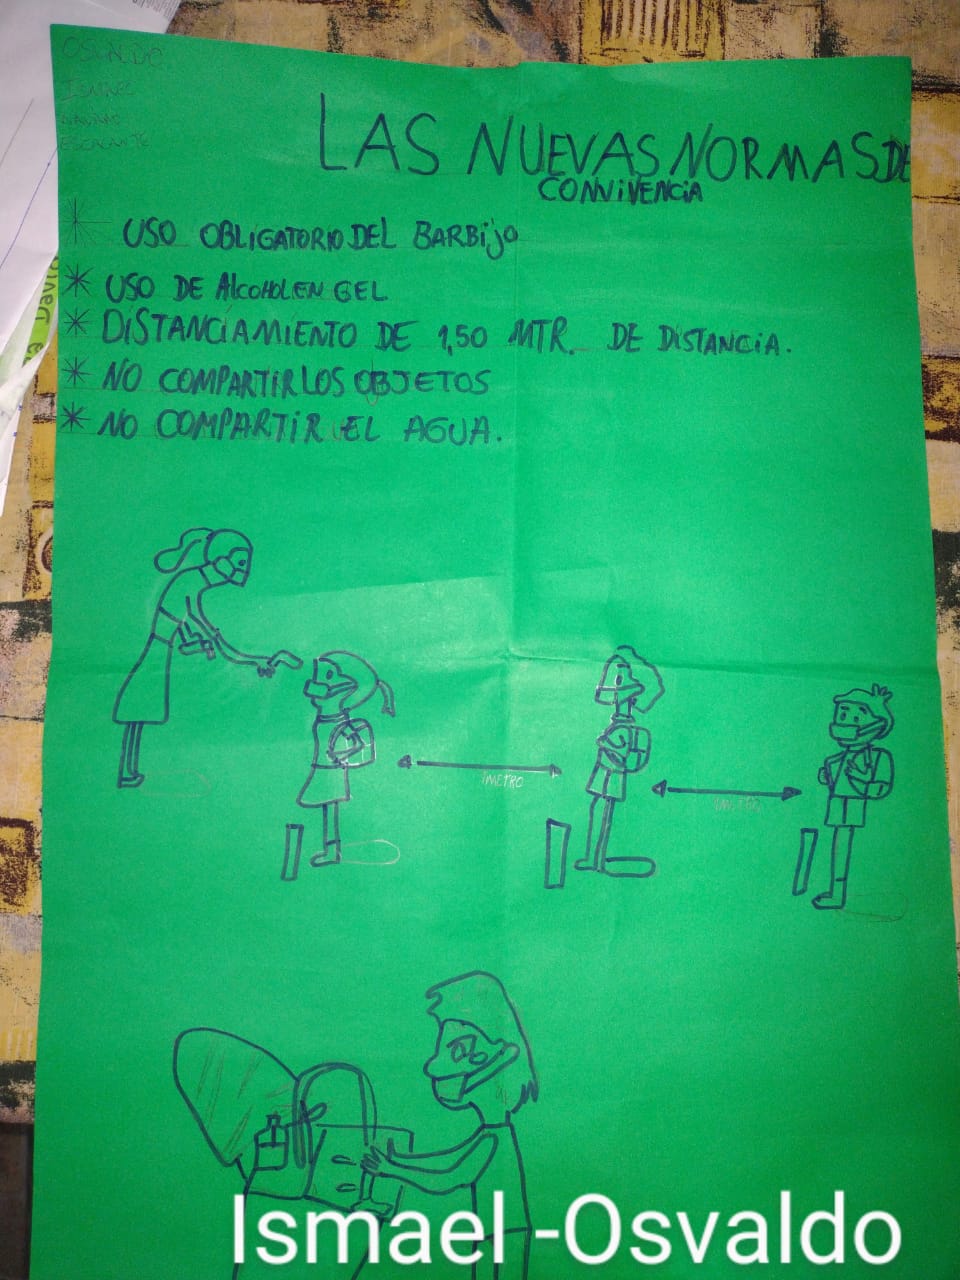 OSVALDO
ISMAEL
ESCALANTE
LAS NUEVAS NORMAS DE
CONVIVENCIA
USO OBLIGATORIO DEL BARBIJO
* USO DE Alcohol EN GEL
* DISTANCIAMIENTO DE 1,50 MTR. DE DISTANCIA.
* NO COMPARTIR LOS OBJETOS
* NO COMPARTIR EL AGUA.
1METRO
1METRO
Ismael -Osvaldo